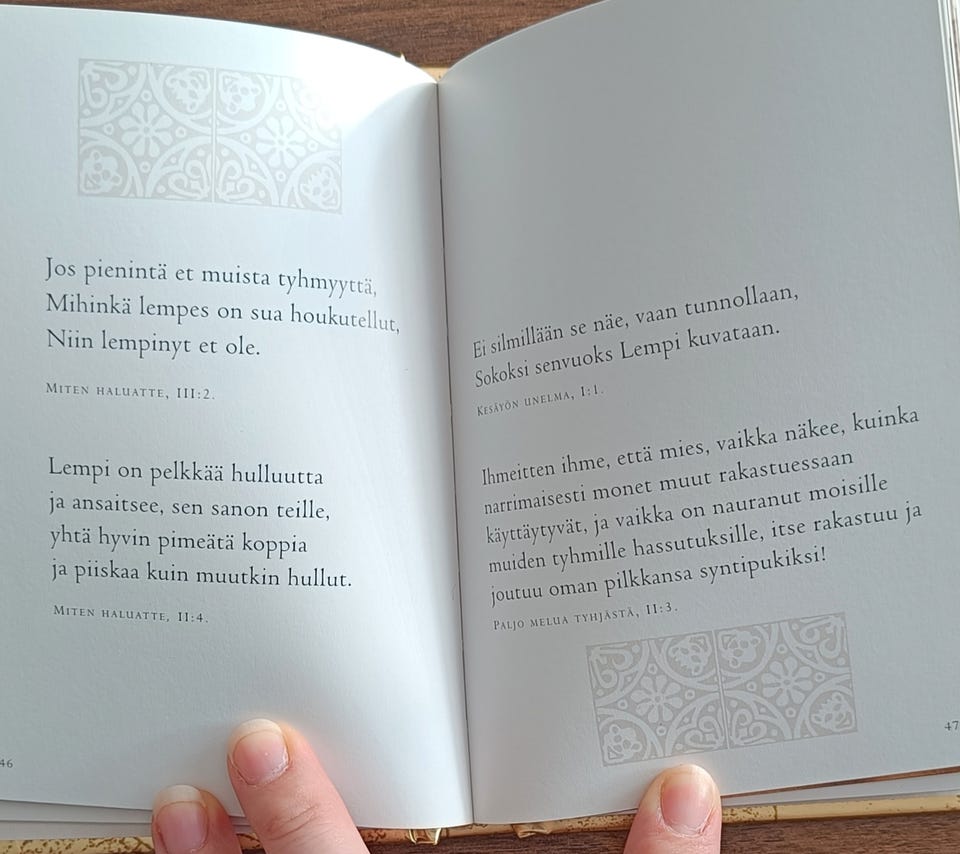 Jos pienintä et muista tyhmyyttä,
Mihinkä lempes on sua houkutellut,
Niin lempinyt et ole.
MITEN HALUATTE, III:2.
Lempi on pelkkää hulluutta
ja ansaitsee, sen sanon teille,
yhtä hyvin pimeätä koppia
ja piiskaa kuin muutkin hullut.
MITEN HALUATTE, II:4.
46
Ei silmillään se näe, vaan tunnollaan,
Sokoksi senvuoks Lempi kuvataan.
KESÄYÖN UNELMA, I:1.
Ihmeitten ihme, että mies, vaikka näkee, kuinka
narrimaisesti monet muut rakastuessaan
käyttäytyvät, ja vaikka on nauranut moisille
muiden tyhmille hassutuksille, itse rakastuu ja
joutuu oman pilkkansa syntipukiksi!
PALJO MELUA TYHJÄSTÄ, II:3.
47